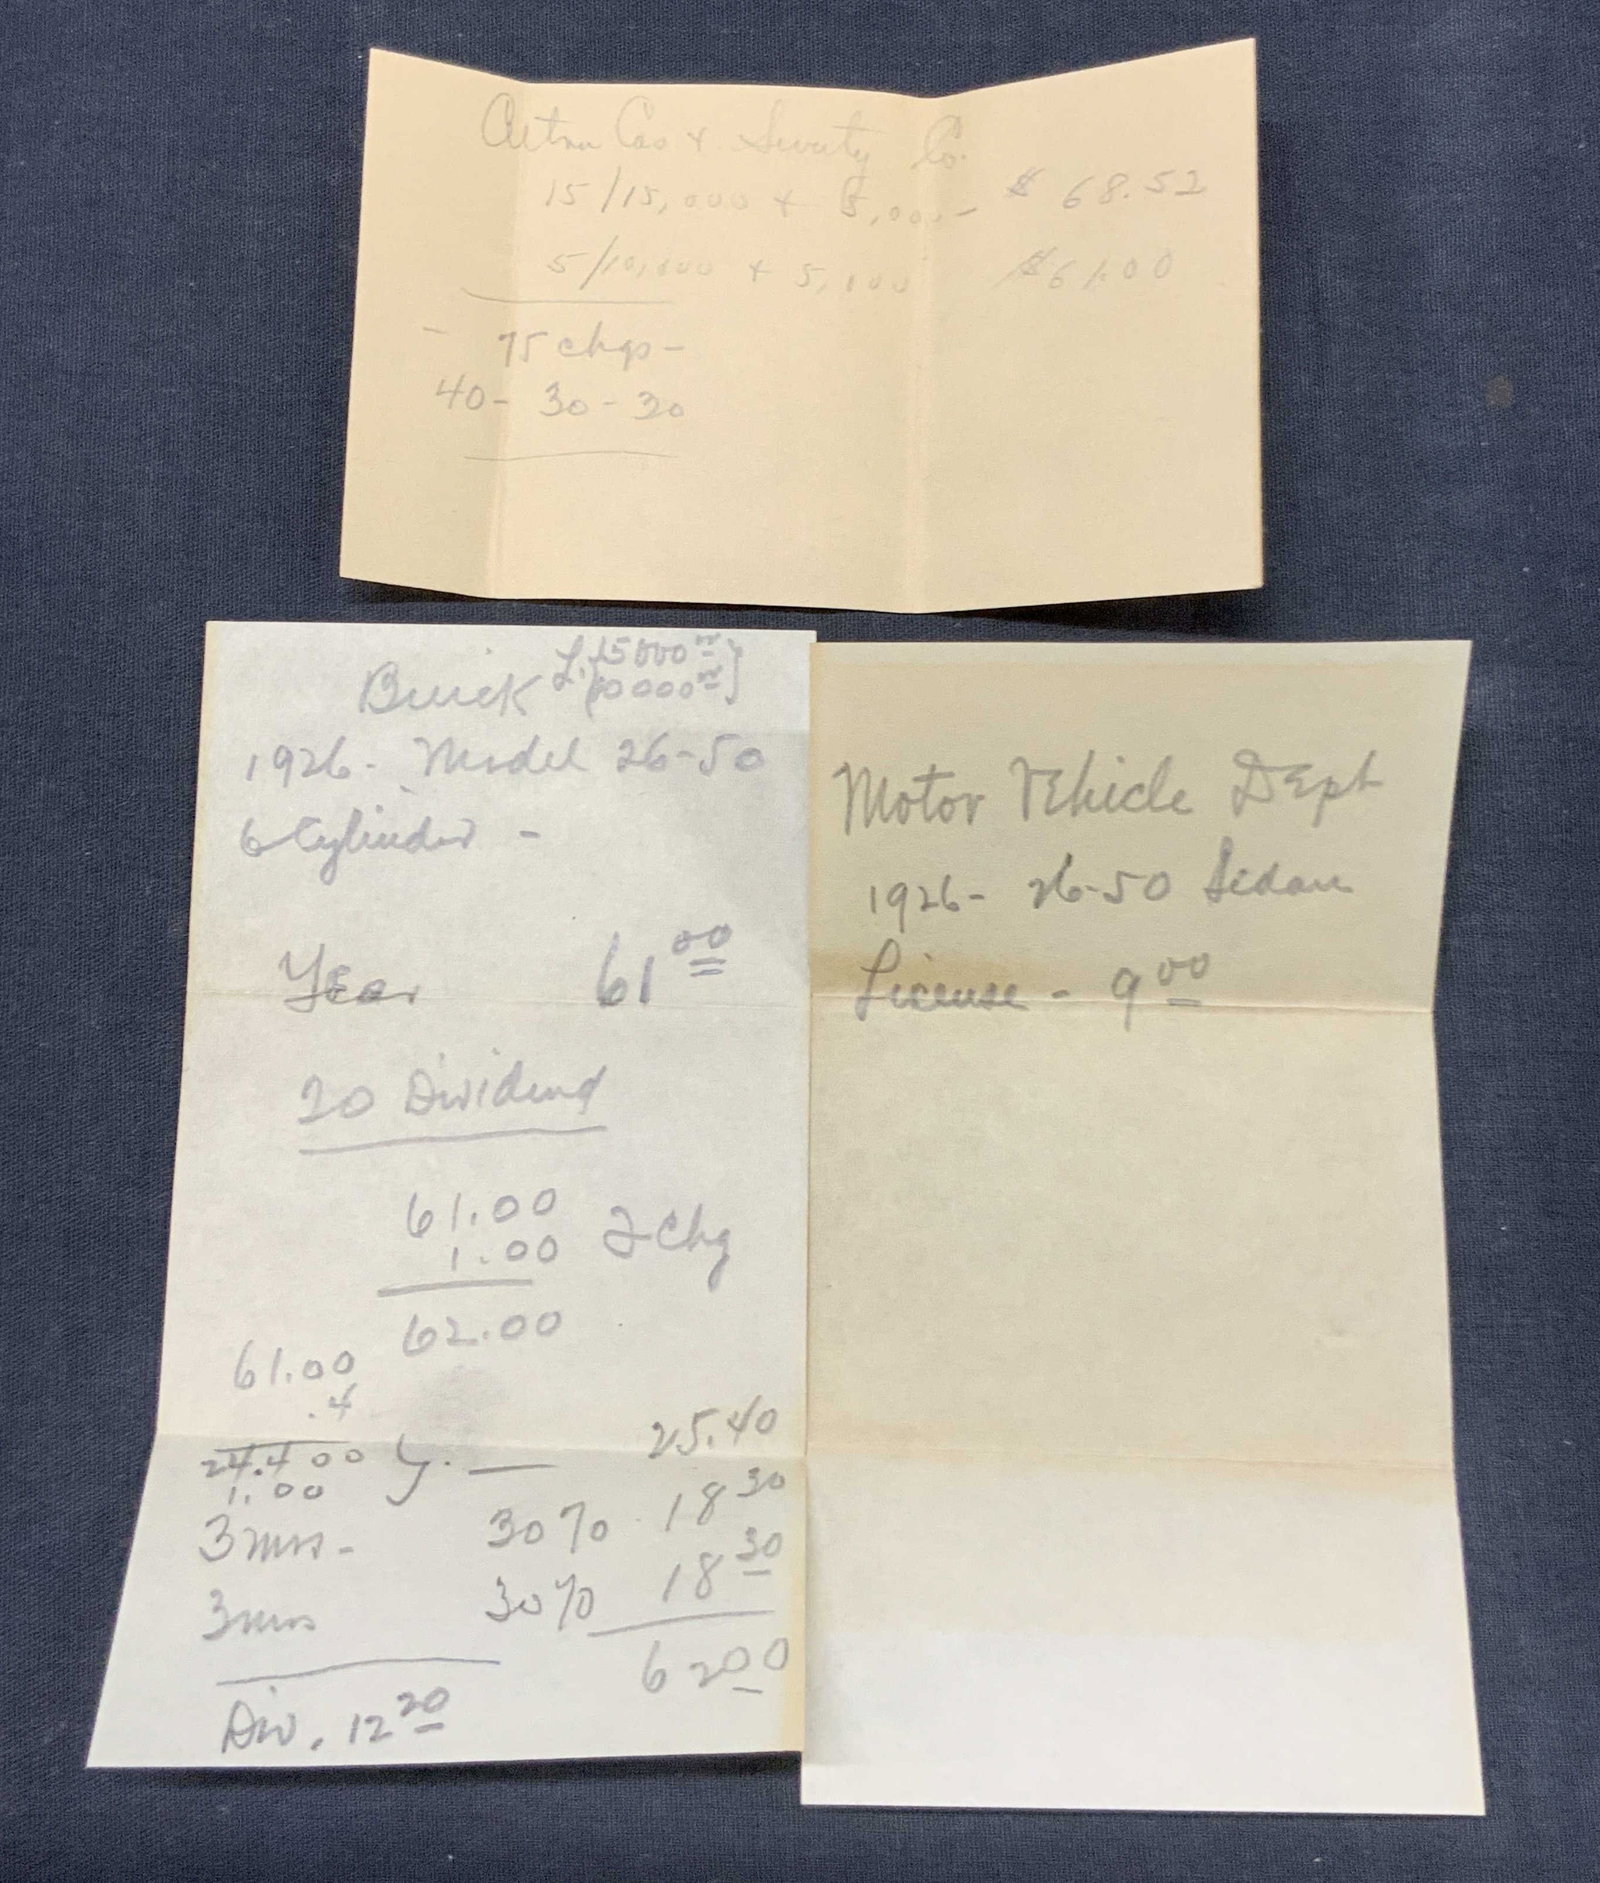 Aetna Cas + Surety Co.
15/15,000 + 5,000 - $ 68.52
5/10,000 + 5,000 $61.00
- 75 chgs -
40 - 30 - 30
Buick L. {5000.00 10000.00}
1926 - Model 26-50
6 Cylinder -
Year 61.00
20 Dividend
61.00
1.00 2 Chg
62.00
61.00
.4
24.400 — 25.40
1.00
3 mos - 30% 18 30
3 mos 30% 18 30
62 00
Div. 12 20
Motor Vehicle Dept
1926 - 26-50 Sedan
License - 9 00